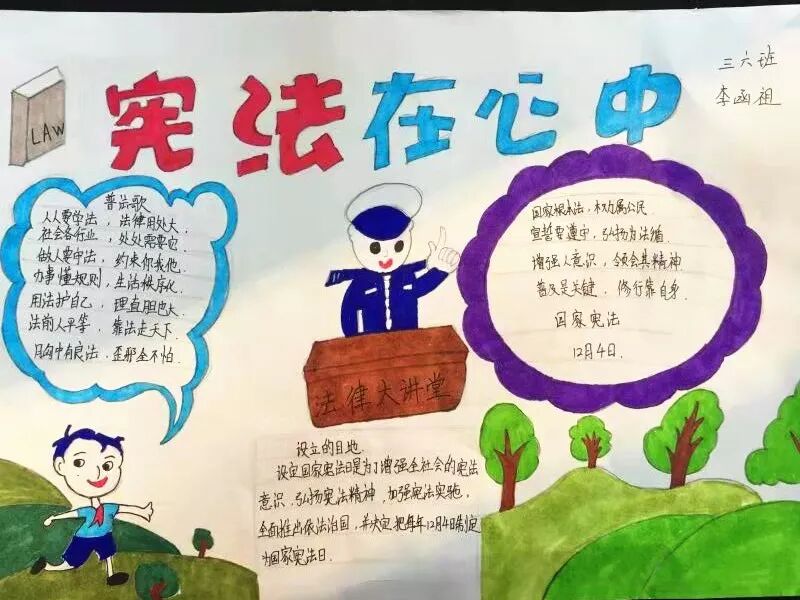 三六班
李函祖
LAW
宪法在心中
普法歌
人人要学法，法律用处大.
社会各行业，处处需要它
做人要守法，约束你我他.
办事懂规则，生活秩序化.
用法护自己，理直胆也大.
法前人平等，靠法走天下.
胸中有良法，歪邪全不怕.
国家根本法，权力属公民.
宣誓要遵守，弘扬为法循
增强人意识，领会其精神
普及是关键，修行靠自身.
国家宪法
12月4日.
法律大讲堂
设立的目地.
设定国家宪法日是为了增强全社会的宪法
意识，弘扬宪法精神，加强宪法实施，
全面推出依法治国，并决定把每年12月4日制定
为国家宪法日.